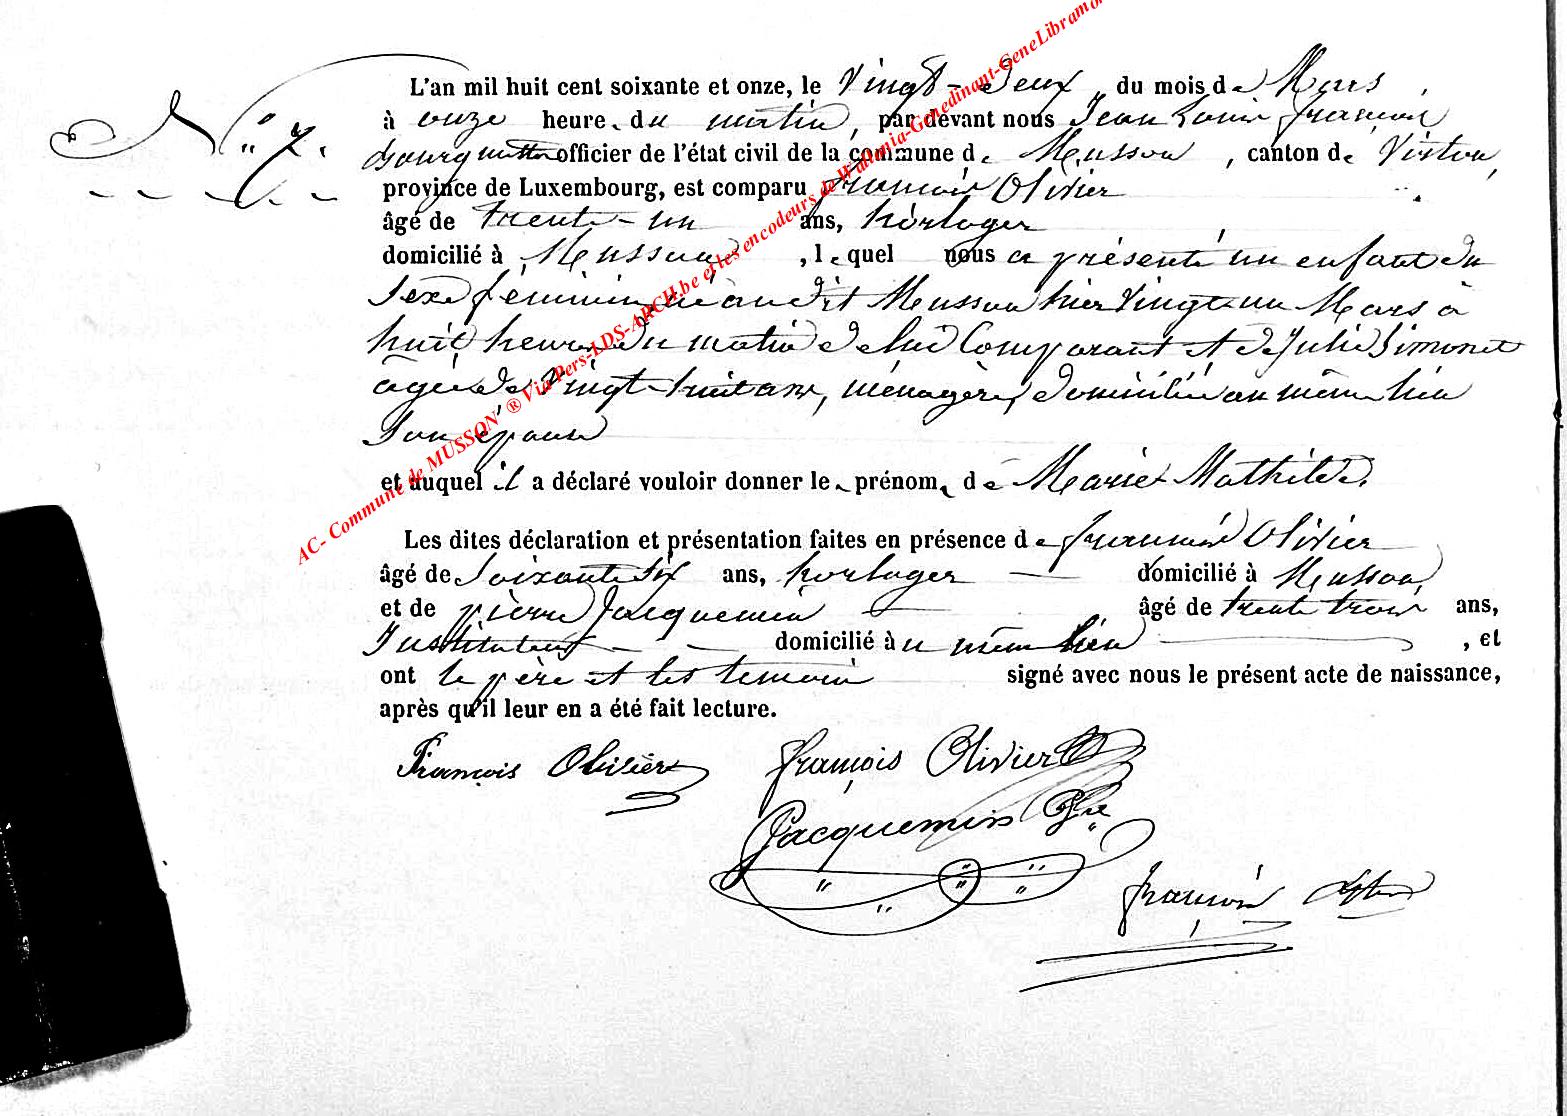 N° 7.
L'an mil huit cent soixante et onze, le Vingt-deux du mois de Mars
à onze heures du matin, par devant nous Jean Louis François
officier de l'état civil de la commune de Musson, canton de Virton,
province de Luxembourg, est comparu François Olivier
âgé de trente-un ans, horloger
domicilié à Musson, lequel nous a présenté un enfant du
sexe féminin né audit Musson hier Vingt un Mars à
huit heures du matin de lui Comparant et de Julie Simonet
agée de Vingt-huit ans, ménagère, domiciliée au même lieu
Son épouse
et auquel il a déclaré vouloir donner le prénom de Marie Mathilde.
Les dites déclaration et présentation faites en présence de François Olivier
âgé de Soixante six ans, horloger domicilié à Musson
et de pierre Jacquemin âgé de trente trois ans,
Instituteur domicilié au même lieu, et
ont le père et les temoins signé avec nous le présent acte de naissance,
après qu'il leur en a été fait lecture.
François Olivier François Olivier
Jacquemin Prre
françois
AC- Commune de MUSSON ® Via Pers-LDS-ARCH.be et les encodeurs de Wallonia-Genedinant-GeneLibramo